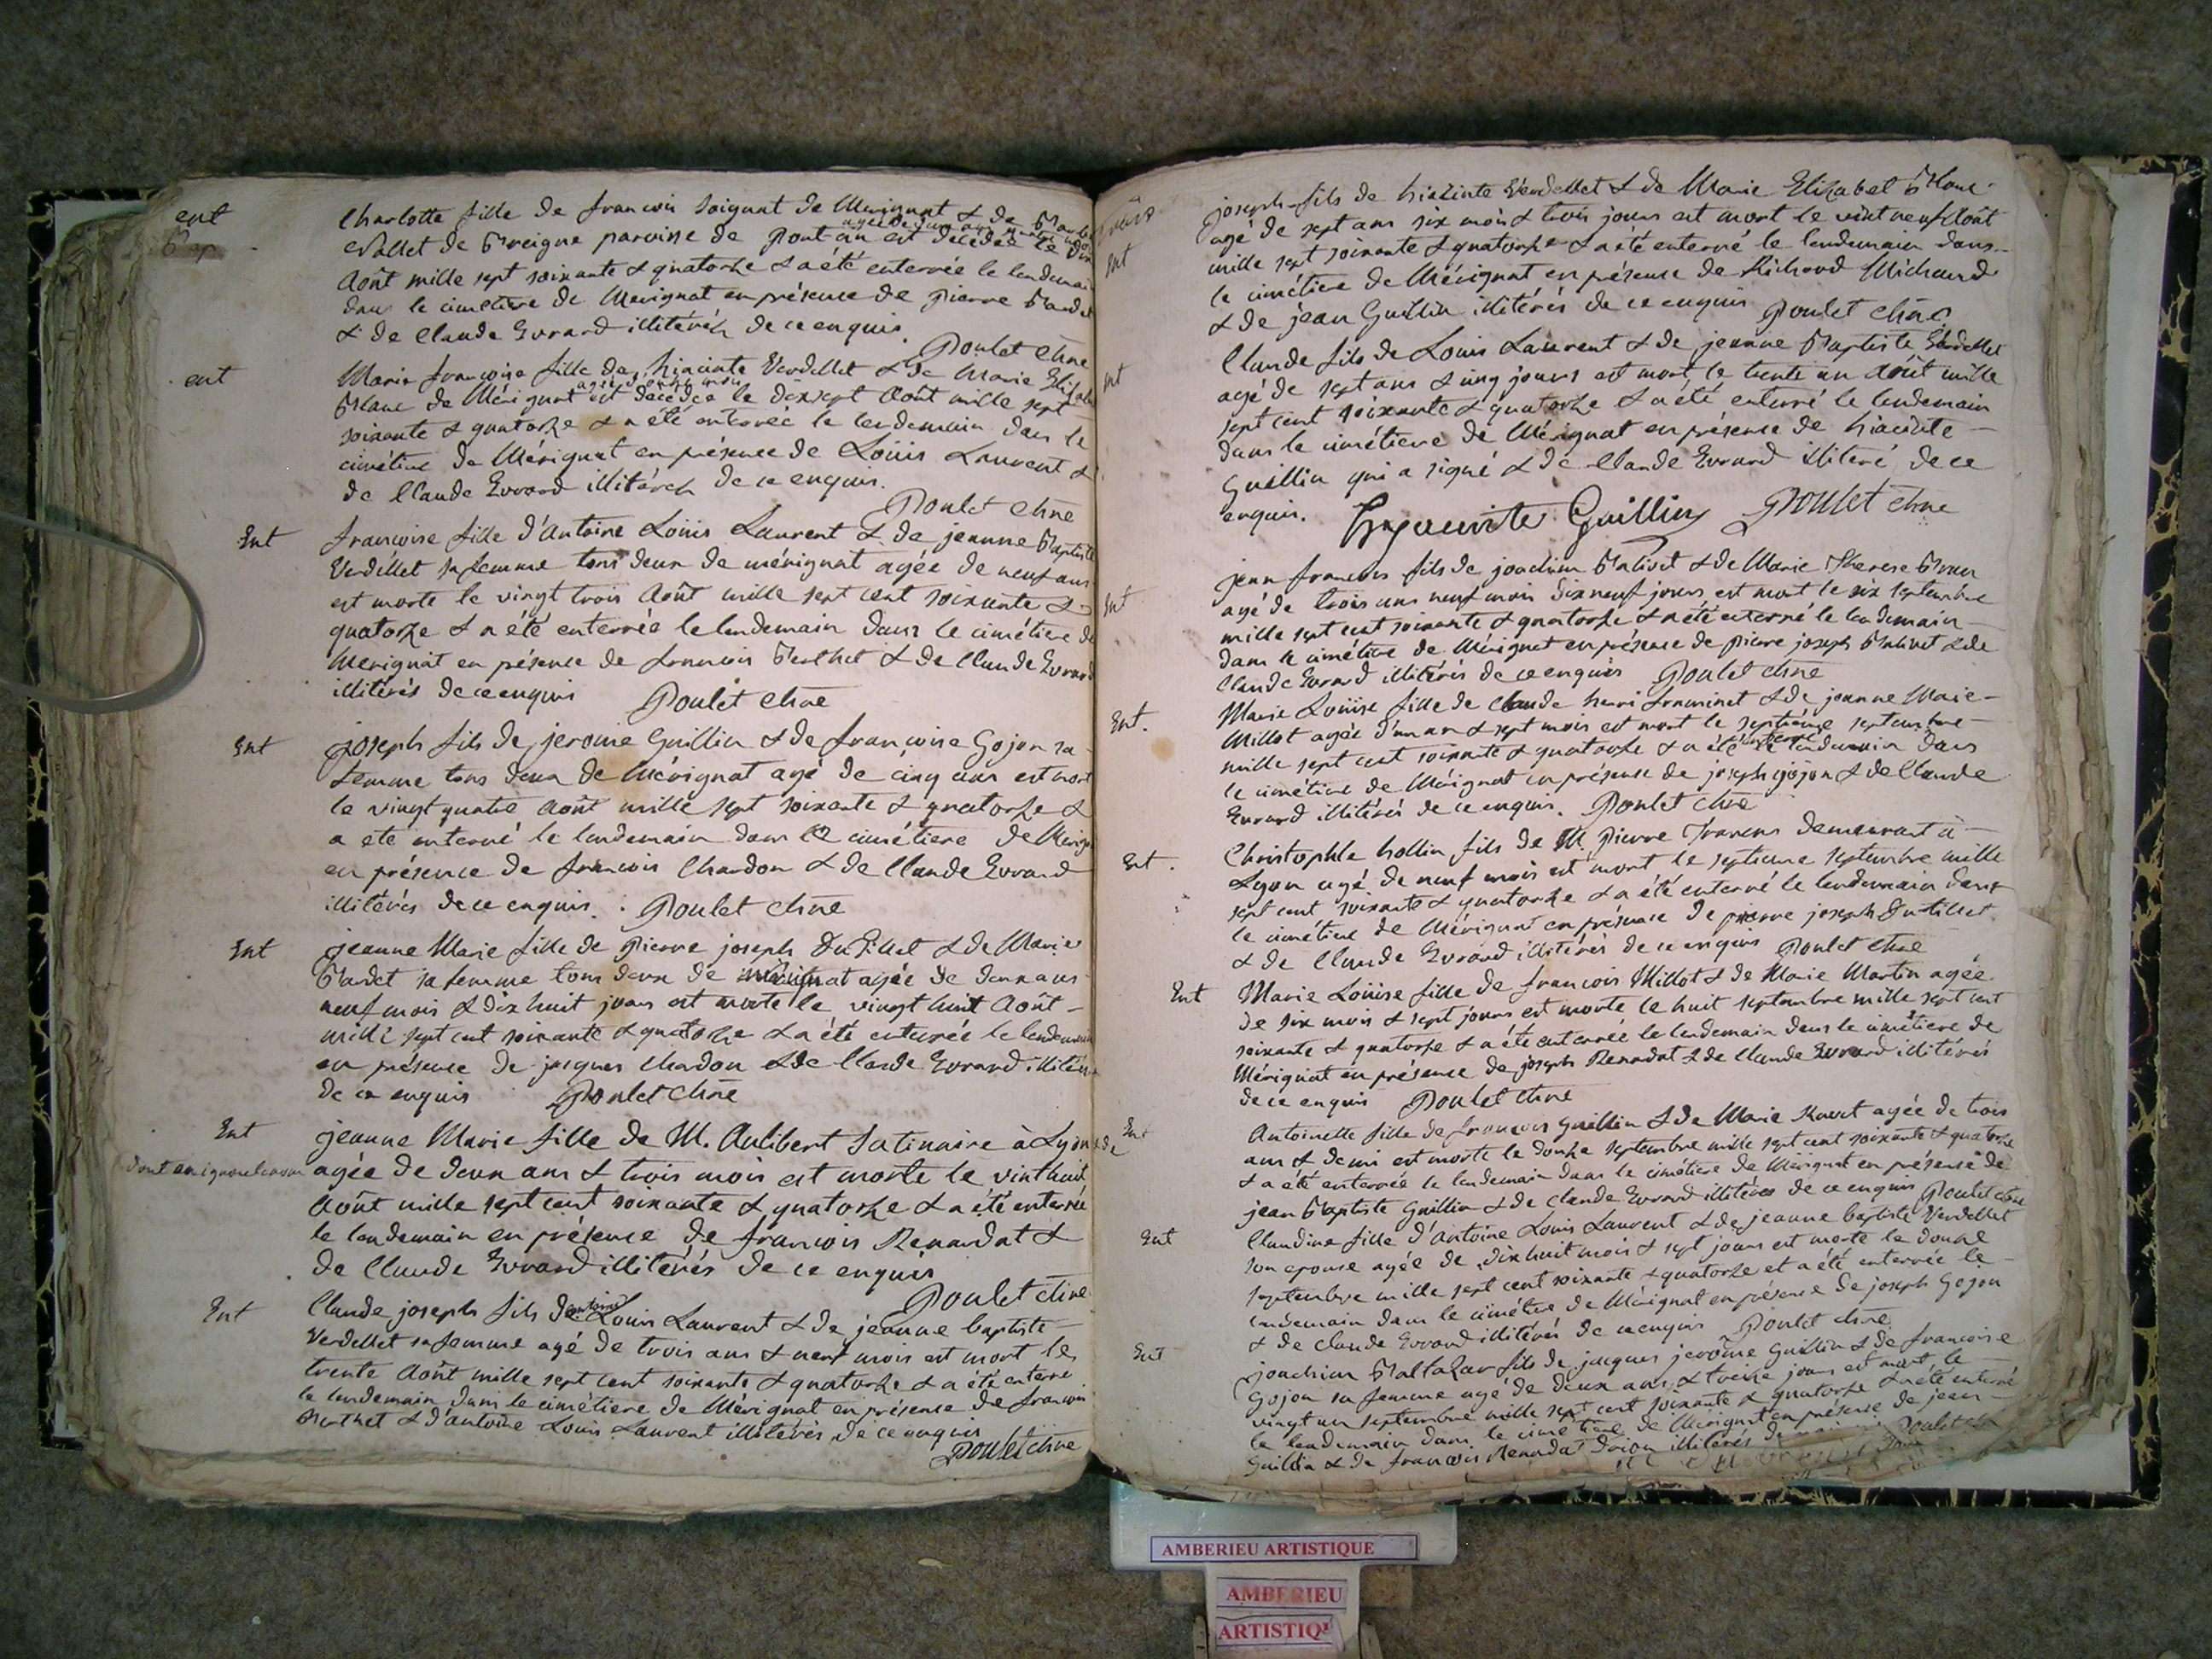 ent
Bap
charlotte fille de francois Soignat de Merignat & de
Vallet de Breigne paroisse de Pont d'ain est décédée le
Aoüt mille sept soixante & quatorze & a été enterrée le lendemain
dans le cimetiere de Merignat en présence de pierre Bandet
& de Claude Evrard illitérés de ce enquis.
Poulet chne
ent
Marie francoise fille de hiacinte Verdellet & de Marie Elisabe
agée d'onze mois
Blanc de Mérignat est décédée le dixsept Aoüt mille sept
soixante & quatorze & a été enterrée le lendemain dans le
cimétiere de Mérignat en présence de Loüis Laurent &
de Claude Evrard illitérés de ce enquis.
Poulet chne
Ent
francoise fille d'Antoine Loüis Laurent & de jeanne Baptiste
Verdellet sa femme tous deux de mérignat agée de neuf ans
est morte le vingt trois Aoüt mille sept cent soixante &
quatorze & a été enterrée le lendemain dans le cimétiere de
Merignat en présence de francois Berthet & de Claude Evrard
illitérés de ce enquis Poulet chne
Ent
joseph fils de jerome Guillin & de francoise Gojon sa
femme tous deux de Mérignat agé de cinq ans est mort
le vingt quatre Aoüt mille sept soixante & quatorze &
a été enterré le lendemain dans le cimétiere de Merigna
en présence de francois Chardon & de Claude Evrard
illitérés de ce enquis. Poulet chne
Ent
jeanne Marie fille de Pierre joseph Dutillet & de Marie
Bandet sa femme tous deux de mérignat agée de deux ans
neuf mois & dix huit jours est morte le vingt huit Aoüt
mille sept cent soixante & quatorze & a été enterrée le lendemain
en présence de jacques Chardon & de Claude Evrard illitérés
de ce enquis Poulet chne
Ent
jeanne Marie fille de M. Aulibert Satinaire à Lyon & de
dont on ignore le nom agée de deux ans & trois mois est morte le vint huit
Aoüt mille sept cent soixante & quatorze & a été enterrée
le lendemain en présence de francois Renardat &
de Claude Evrard illitérés de ce enquis
Poulet chne
Ent
antoine
Claude joseph fils de Loüis Laurent & de jeanne baptiste
Verdellet sa femme agé de trois ans & neuf mois est mort le
trente Aoüt mille sept cent soixante & quatorze & a été enterré
le lendemain dans le cimétiere de Mérignat en présence de francois
Berthet & d'antoine Louis Laurent illitérés de ce enquis
Poulet chne
Ent
joseph fils de hiacinte Verdellet & de Marie Elizabet Blanc
agé de sept ans six mois & trois jours est mort le vint neuf Aoüt
mille sept soixante & quatorze & a été enterré le lendemain dans
le cimétiere de Mérignat en présence de Richard Michaud
& de jean Guillin illitérés de ce enquis Poulet chne
ent
Claude fils de Louis Laurent & de jeanne Baptiste Verdellet
agé de sept ans & cinq jours est mort le trente un Aoüt mille
sept cent soixante & quatorze & a été enterré le lendemain
dans le cimétiere de Mérignat en présence de hiacinte
Guillin qui a signé & de Claude Evrard illiteré de ce
enquis. Hyacinte Guillin Poulet chne
Ent
jean francois fils de joachim Balivet & de Marie Therese
agé de trois ans neuf mois dix neuf jours est mort le six septembre
mille sept cent soixante & quatorze & a été enterré le lendemain
dans le cimétiere de Mérignat en présence de pierre joseph Balivet & de
Claude Evrard illitérés de ce enquis Poulet chne
Ent.
Marie Loüise fille de Claude henri & de jeanne Marie
Millot agée d'un an & sept mois est mort le septième septembre
mille sept cent soixante & quatorze & a été enterré le lendemain dans
le cimétiere de Mérignat en présence de joseph gojon & de Claude
Evrard illitérés de ce enquis. Poulet chne
Ent.
Christophle hollin fils de M. Pierre demeurant à
Lyon agé de neuf mois est mort le septieme septembre mille
sept cent soixante & quatorze & a été enterré le lendemain dans
le cimétiere de Mérignat en présence de pierre joseph Dutillet
& de Claude Evrard illitérés de ce enquis Poulet chne
Ent
Marie Loüise fille de francois Millot & de Marie Martin agée
de six mois & sept jours est morte le huit septembre mille sept cent
soixante & quatorze & a été enterrée le lendemain dans le cimétiere de
Mérignat en présence de joseph Renardat & de Claude Evrard illitérés
de ce enquis Poulet chne
Ent
Antoinette fille de francois Guillin & de Marie agée de trois
ans & demi est morte le douze septembre mille sept cent soixante & quatorze
& a été enterrée le lendemain dans le cimétiere de Mérignat en présence de
jean Baptiste Guillin & de Claude Evrard illitérés de ce enquis Poulet chne
Ent
Claudine fille d'Antoine Louis Laurent & de jeanne baptiste Verdellet
son epouse agée de dixhuit mois & sept jours est morte le douze
septembre mille sept cent soixante & quatorze et a été enterrée le
lendemain dans le cimétiere de Mérignat en présence de joseph Gojon
& de Claude Evrard illitérés de ce enquis Poulet chne
Ent
joachim Baltazar fils de jacques jerome Guillin & de francoise
Gojon sa femme agé de deux ans & treize jours est mort le
vingt un septembre mille sept cent soixante & quatorze & a été enterré
le lendemain dans le cimetiere de Mérignat en présence de jean
Guillin & de francois Renardat illitérés de Poulet chne
AMBERIEU ARTISTIQUE
AMBERIEU
ARTISTIQ